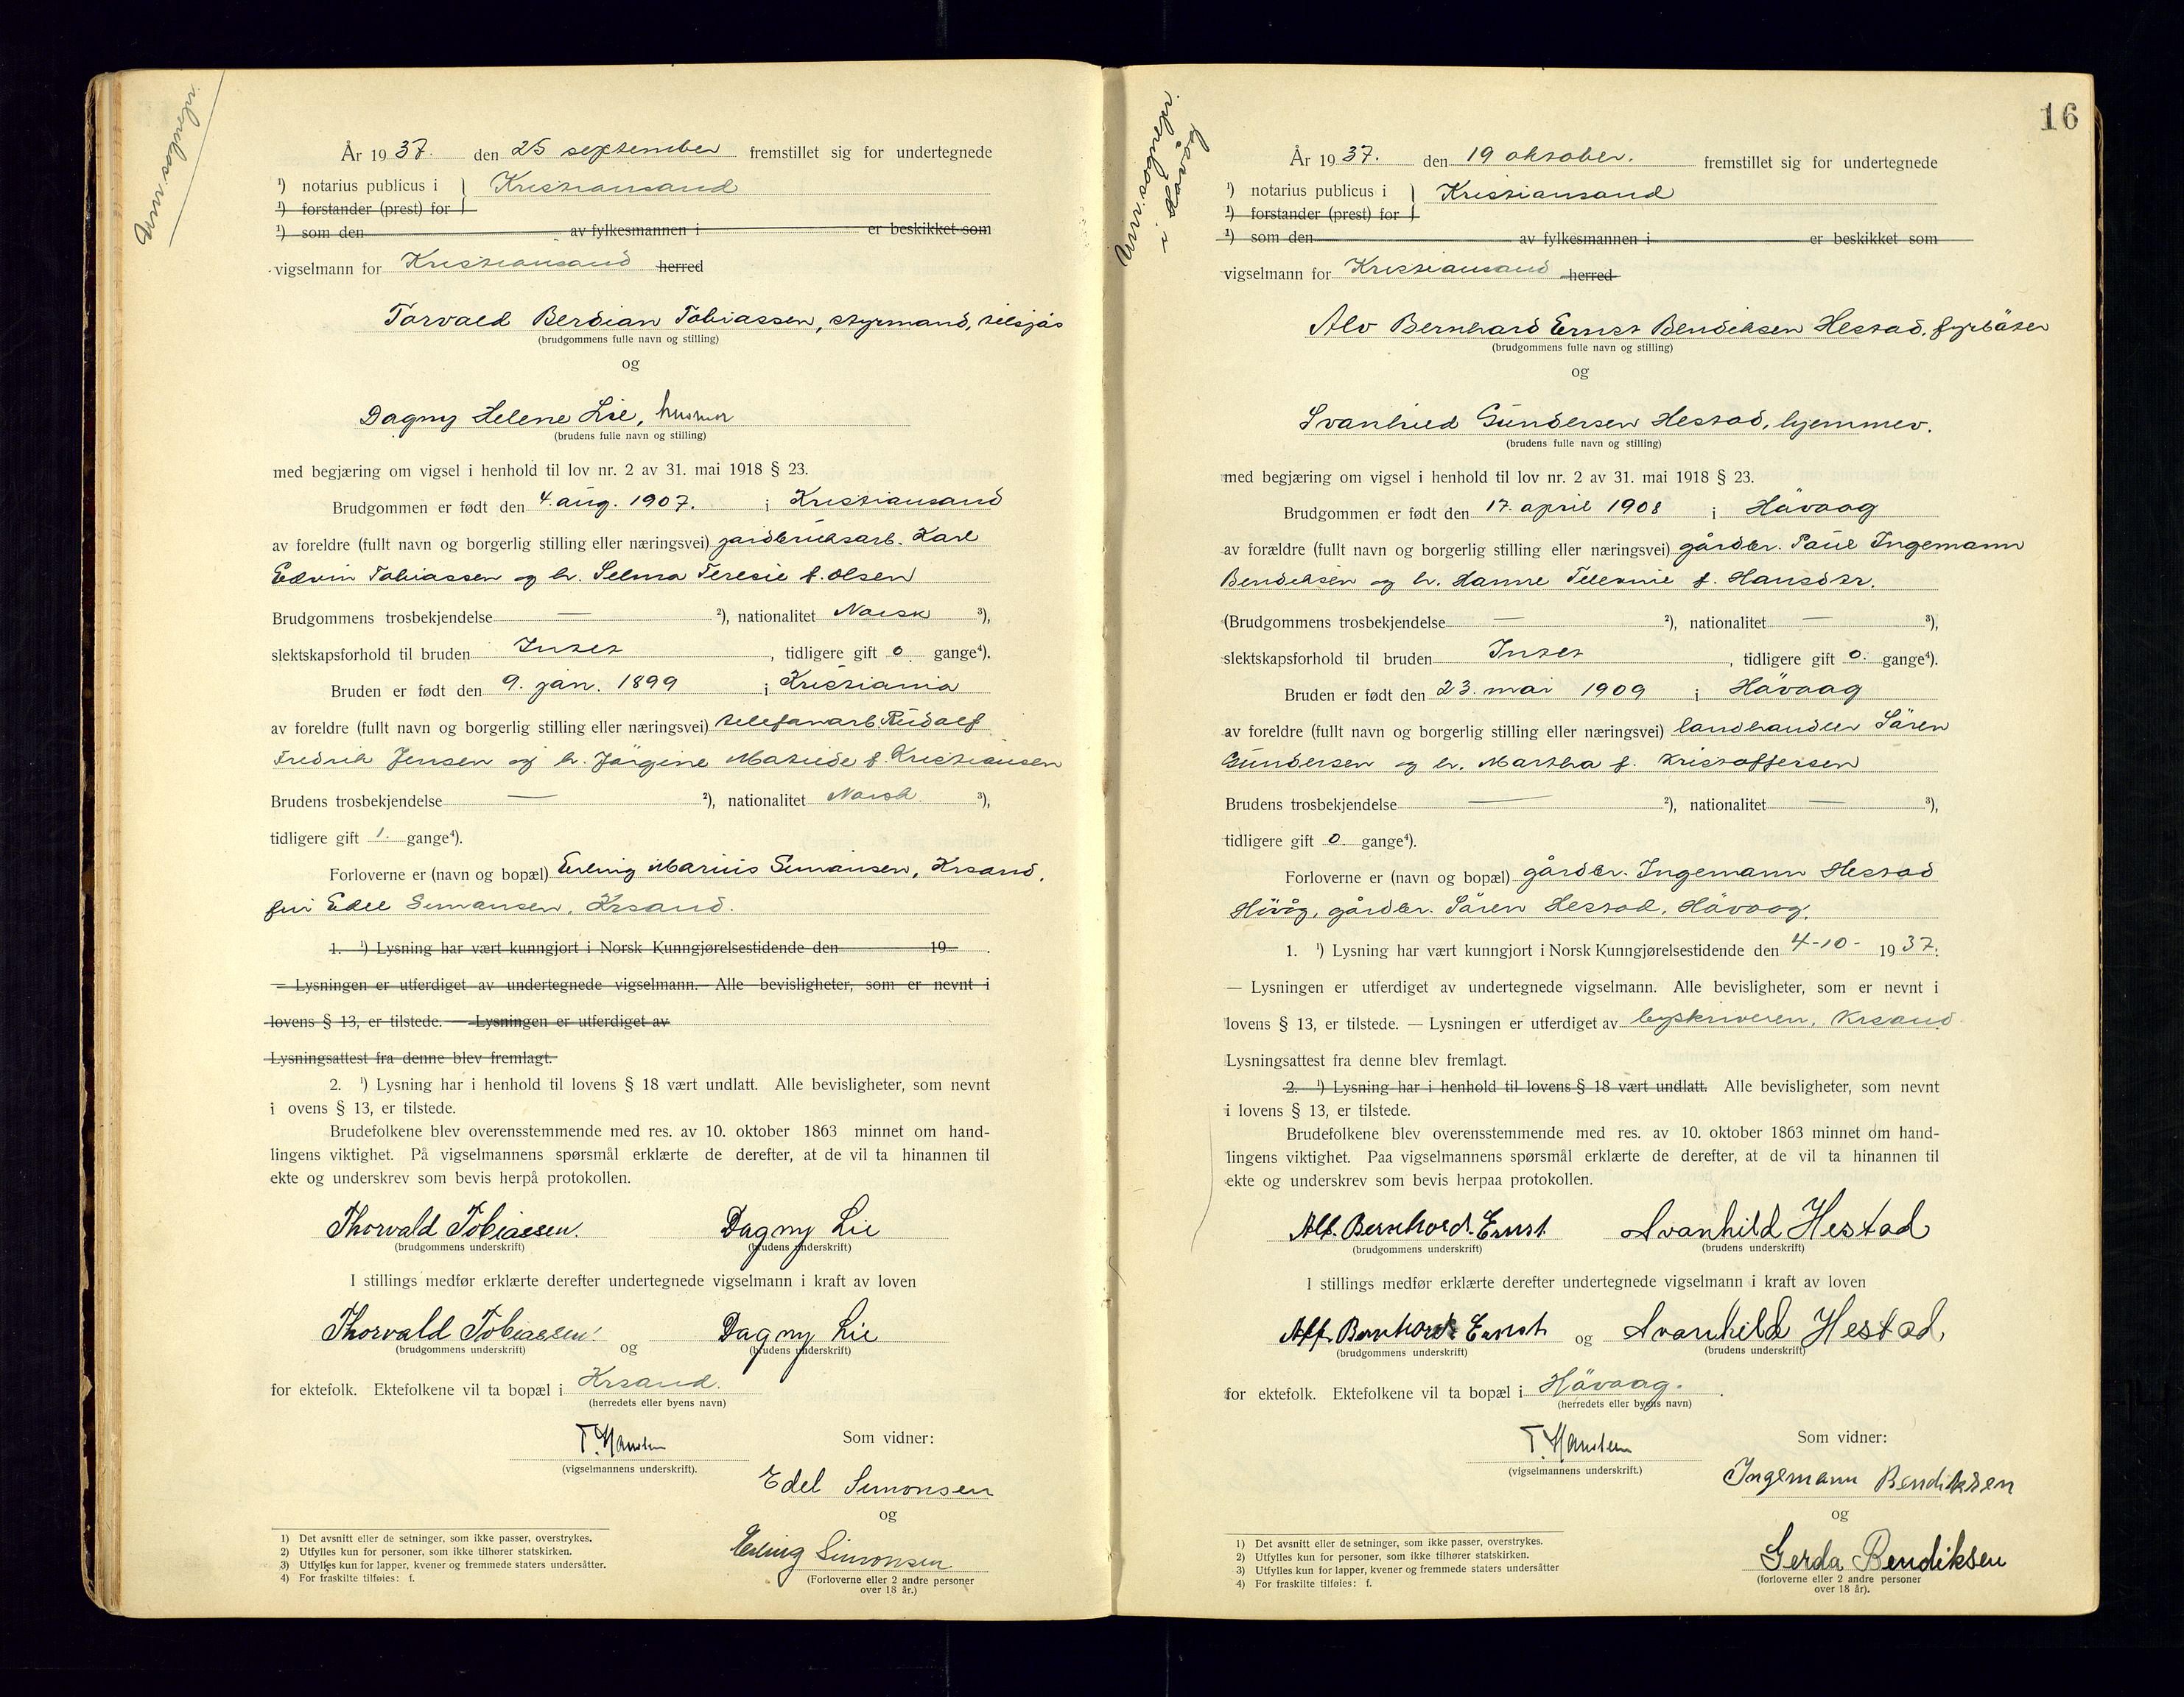 Um. sognepr.
År 1937. den 25 september fremstillet sig for undertegnede
¹) notarius publicus i } Kristiansand
¹) forstander (prest) for
¹) som den av fylkesmannen i er beskikket som
vigselmann for Kristiansand herred
Torvald Berdian Tobiassen, styrmand, tilsjøs
(brudgommens fulle navn og stilling)
og
Dagny Helene Lie, husmor
(brudens fulle navn og stilling)
med begjæring om vigsel i henhold til lov nr. 2 av 31. mai 1918 § 23.
Brudgommen er født den 4. aug. 1907. i Kristiansand
av foreldre (fullt navn og borgerlig stilling eller næringsvei) jordbruksarb. Karl
Edvin Tobiassen og h. Selma Teresie f. Olsen
Brudgommens trosbekjendelse — ²), nationalitet Norsk ³),
slektskapsforhold til bruden Intet, tidligere gift 0 gange⁴).
Bruden er født den 9. jan. 1899 i Kristiania
av foreldre (fullt navn og borgerlig stilling eller næringsvei) telefonarb. Rudolf
Fredrik Jensen og h. Jørgine Matilde f. Kristiansen
Brudens trosbekjendelse — ²), nationalitet Norsk ³),
tidligere gift 1. gange⁴).
Forloverne er (navn og bopæl) Erling Marius Simonsen, Krsand,
fru Edel Simonsen, Krsand.
1. ¹) Lysning har vært kunngjort i Norsk Kunngjørelsestidende den 19 .
— Lysningen er utferdiget av undertegnede vigselmann. Alle bevisligheter, som er nevnt i
lovens § 13, er tilstede. — Lysningen er utferdiget av
Lysningsattest fra denne blev fremlagt.
2. ¹) Lysning har i henhold til lovens § 18 vært undlatt. Alle bevisligheter, som nevnt
i ovens § 13, er tilstede.
Brudefolkene blev overensstemmende med res. av 10. oktober 1863 minnet om hand-
lingens viktighet. På vigselmannens spørsmål erklærte de derefter, at de vil ta hinannen til
ekte og underskrev som bevis herpå protokollen.
Thorvald Tobiassen. Dagny Lie
(brudgommens underskrift) (brudens underskrift)
I stillings medfør erklærte derefter undertegnede vigselmann i kraft av loven
Thorvald Tobiassen. og Dagny Lie
(brudgommens underskrift) (brudens underskrift)
for ektefolk. Ektefolkene vil ta bopæl i Krsand.
(herredets eller byens navn)
T. Hansten Som vidner:
(vigselmannens underskrift).
Edel Simonsen
og
Erling Simonsen
(Forloverne eller 2 andre personer
over 18 år.)
1) Det avsnitt eller de setninger, som ikke passer, overstrykes.
2) Utfylles kun for personer, som ikke tilhører statskirken.
3) Utfylles kun for lapper, kvener og fremmede staters undersåtter.
4) For fraskilte tilføies: f.
16
Um. sognepr.
i Høvåg
År 1937. den 19 oktober. fremstillet sig for undertegnede
¹) notarius publicus i } Kristiansand
¹) forstander (prest) for
¹) som den av fylkesmannen i er beskikket som
vigselmann for Kristiansand herred
Alv Bernhard Ernst Bendiksen Hestad, fyrbøter
(brudgommens fulle navn og stilling)
og
Svanhild Gundersen Hestad, hjemmev.
(brudens fulle navn og stilling)
med begjæring om vigsel i henhold til lov nr. 2 av 31. mai 1918 § 23.
Brudgommen er født den 17. april 1908 i Høvaag
av forældre (fullt navn og borgerlig stilling eller næringsvei) gårdbr. Paul Ingemann
Bendiksen og h. Hanne Televine f. Hansdtr.
(Brudgommens trosbekjendelse — ²), nationalitet — ³),
slektskapsforhold til bruden Intet, tidligere gift 0. gange⁴).
Bruden er født den 23. mai 1909 i Høvaag
av foreldre (fullt navn og borgerlig stilling eller næringsvei) landhandler Søren
Gundersen og h. Martha f. Kristoffersen
Brudens trosbekjendelse — ²), nationalitet — ³),
tidligere gift 0 gange⁴).
Forloverne er (navn og bopæl) gårdbr. Ingemann Hestad
Høvåg, gårdbr. Søren Hestad, Høvaag.
1. ¹) Lysning har vært kunngjort i Norsk Kunngjørelsestidende den 4-10- 1937.
— Lysningen er utferdiget av undertegnede vigselmann. Alle bevisligheter, som er nevnt i
lovens § 13, er tilstede. — Lysningen er utferdiget av byskriveren, Krsand
Lysningsattest fra denne blev fremlagt.
2. ¹) Lysning har i henhold til lovens § 18 vært undlatt. Alle bevisligheter, som nevnt
i lovens § 13, er tilstede.
Brudefolkene blev overensstemmende med res. av 10. oktober 1863 minnet om hand-
lingens viktighet. Paa vigselmannens spørsmål erklærte de derefter, at de vil ta hinannen til
ekte og underskrev som bevis herpaa protokollen.
Alf. Bernhard. Ernst Svanhild Hestad
(brudgommens underskrift) (brudens underskrift)
I stillings medfør erklærte derefter undertegnede vigselmann i kraft av loven
Alf. Bernhard Ernst og Svanhild Hestad,
(brudgommens underskrift) (brudens underskrift)
for ektefolk. Ektefolkene vil ta bopæl i Høvaag.
(herredets eller byens navn)
T. Hansten Som vidner:
(vigselmannens underskrift.)
Ingemann Bendiksen
og
Gerda Bendiksen
(forloverne eller 2 andre personer
over 18 år).
1) Det avsnitt eller de setninger, som ikke passer, overstrykes.
2) Utfylles kun for personer, som ikke tilhører statskirken.
3) Utfylles kun for lapper, kvener og fremmede staters undersåtter
4) For fraskilte tilføies: f.